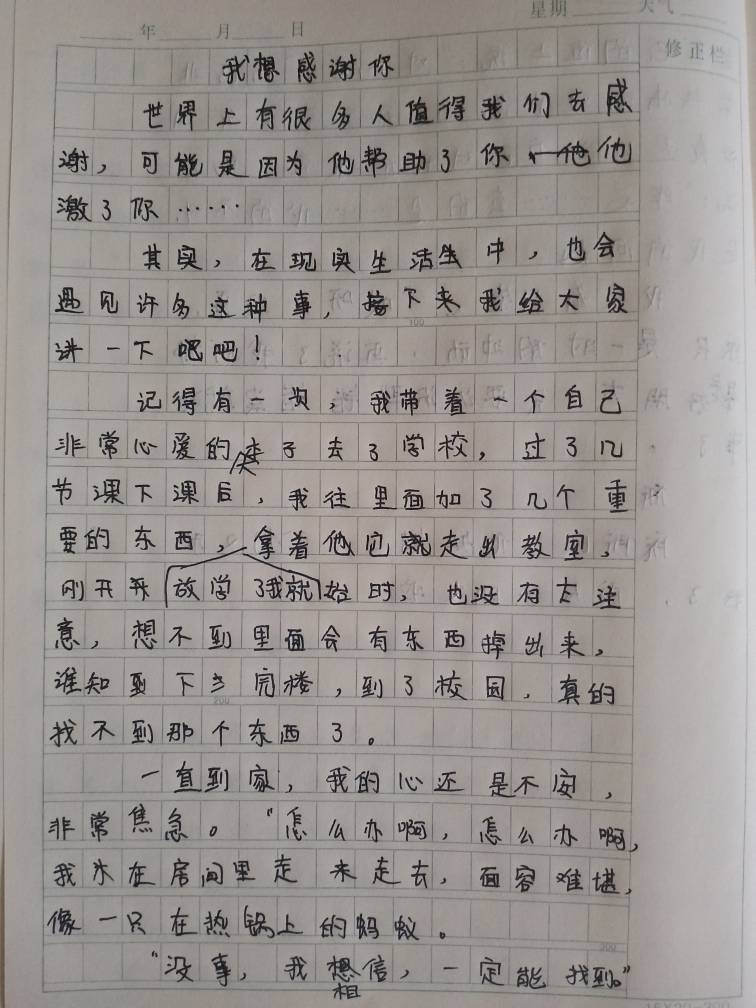 星期 天气
年 月 日
修正栏
我想感谢你
世界上有很多人值得我们去感
谢，可能是因为他帮助了你 他他
激了你……
其实，在现实生活生中，也会
遇见许多这种事，接下来我给大家
讲一下吧吧！
记得有一次，我带着一个自己
非常心爱的袋子去了学校，过了几
节课下课后，我往里面加了几个重
要的东西，拿着他它就走出教室，
放学了我就
刚开开始时，也没有太注
意，想不到里面会有东西掉出来，
谁知到下了完楼，到了校园，真的
找不到那个东西了。
一直到家，我的心还是不安，
非常焦急。“怎么办啊，怎么办啊，
我在房间里走来走去，面容难堪，
像一只在热锅上的蚂蚁。
“没事，我想信，一定能找到。”
相
100
200
300